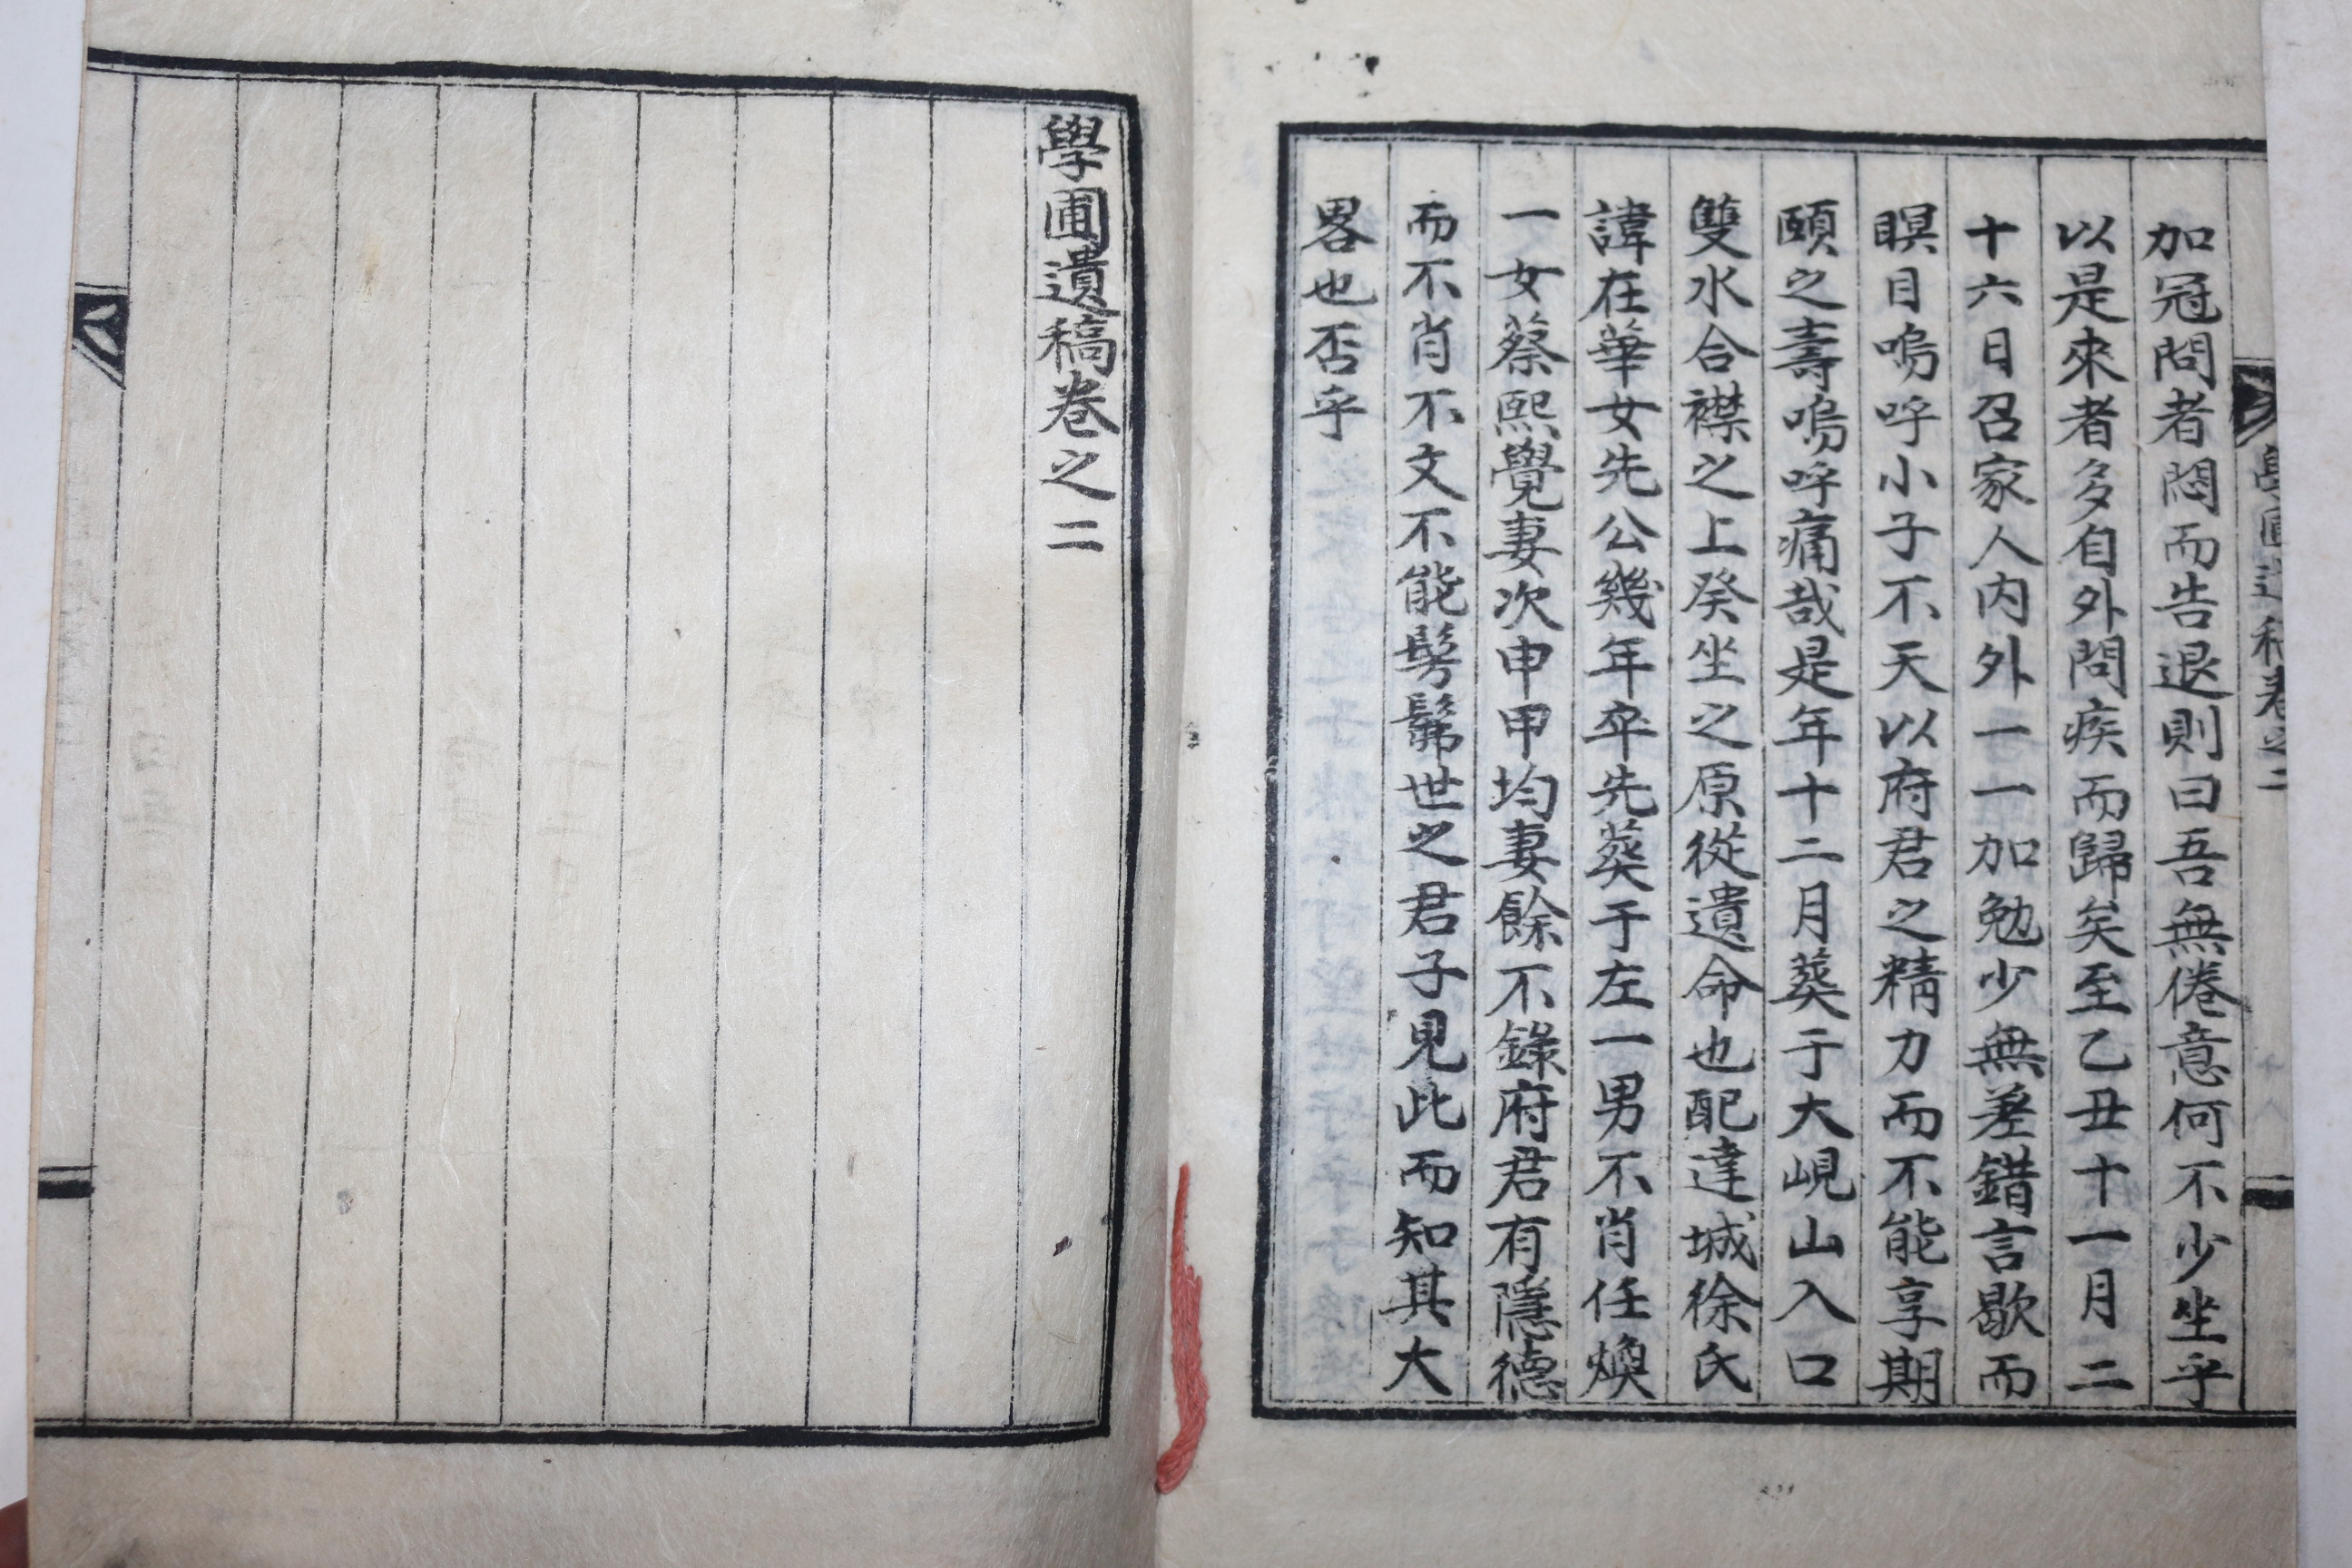 學圃遺稿卷之二
加冠問者悶而告退則曰吾無倦意何不少坐乎
以是來者多自外問疾而歸矣至乙丑十一月二
十六日召家人內外一一加勉少無差錯言歇而
瞑目嗚呼小子不天以府君之精力而不能享期
頤之壽嗚呼痛哉是年十二月葬于大峴山入口
雙水合襟之上癸坐之原從遺命也配達城徐氏
諱在華女先公幾年卒先葬于左一男不肖任煥
一女蔡熙覺妻次申甲均妻餘不錄府君有隱德
而不肖不文不能髣髴世之君子見此而知其大
畧也否乎
學圃遺稿卷之二